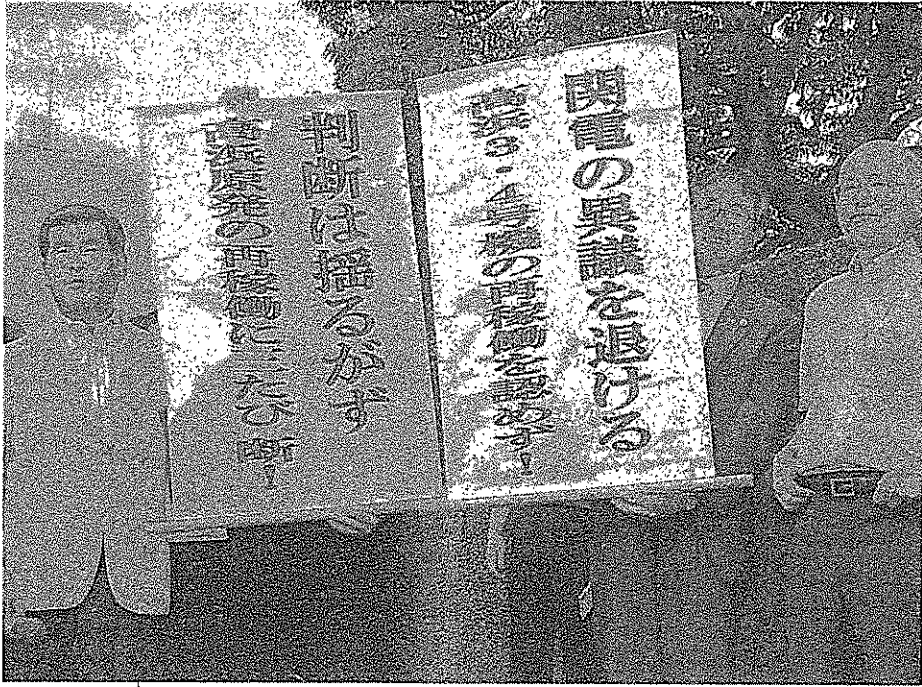 関電の異議を退ける
高浜3・4号機の再稼働を認めず!
判断は揺るがず
高浜原発の再稼働にふたたび断!